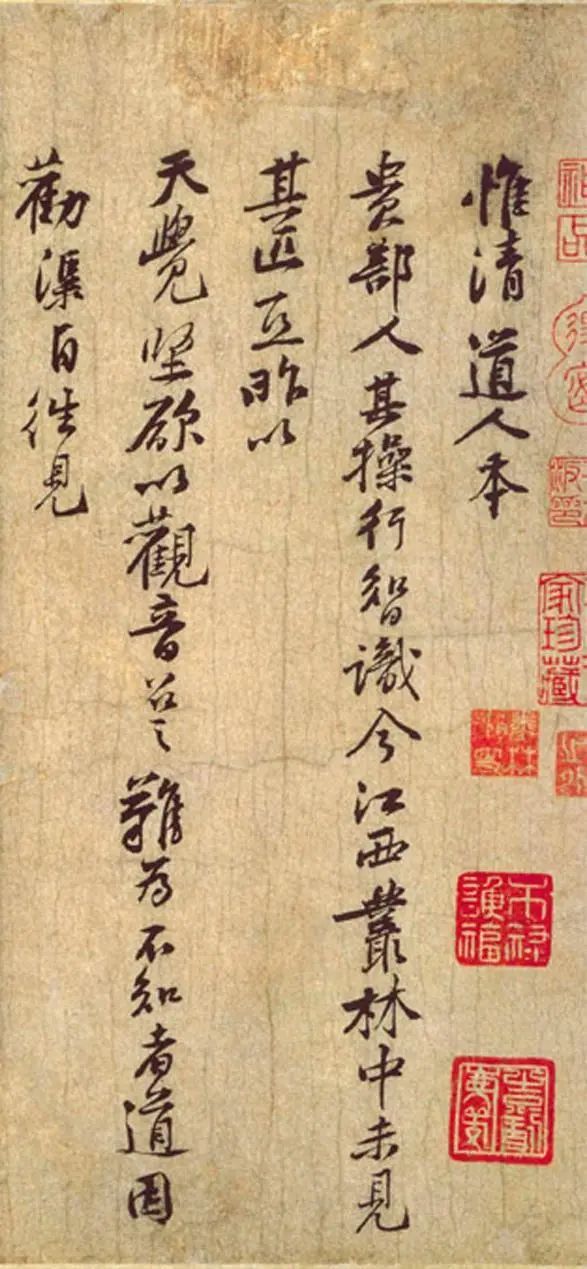 家珍藏
惟清道人本
貴鄙人其操行智識今江西叢林中未見
其匹亙昨以
天覺堅欲以觀音召之難為不知者道因
勸渠自往見